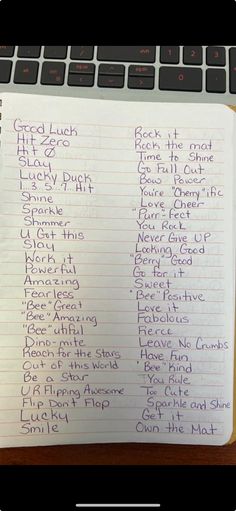 Good Luck
Hit Zero
Hit Ø
SLay
Lucky Duck
1..3..5..7.. Hit
Shine
Sparkle
Shimmer
U Got this
Slay
Work it
Powerful
Amazing
Fearless
"Bee" Great
"Bee" Amazing
"Bee" utiful
Dino-mite
Reach for the Stars
Out of this World
Be a Star
UR Flipping Awesome
Flip Dont Flop
Lucky
Smile
Rock it
Rock the mat
Time to Shine
Go Full Out
Bow Power
You're "Cherry"ific
Love Cheer
"Purr-Fect
You Rock
Never Give UP
Looking Good
"Berry" Good
Go for it
Sweet
"Bee" Positive
Love it
Fabolous
Fierce
Leave No Crumbs
Have Fun
"Bee" Kind
You Rule
Too Cute
Sparkle and Shine
Get it
Own the Mat